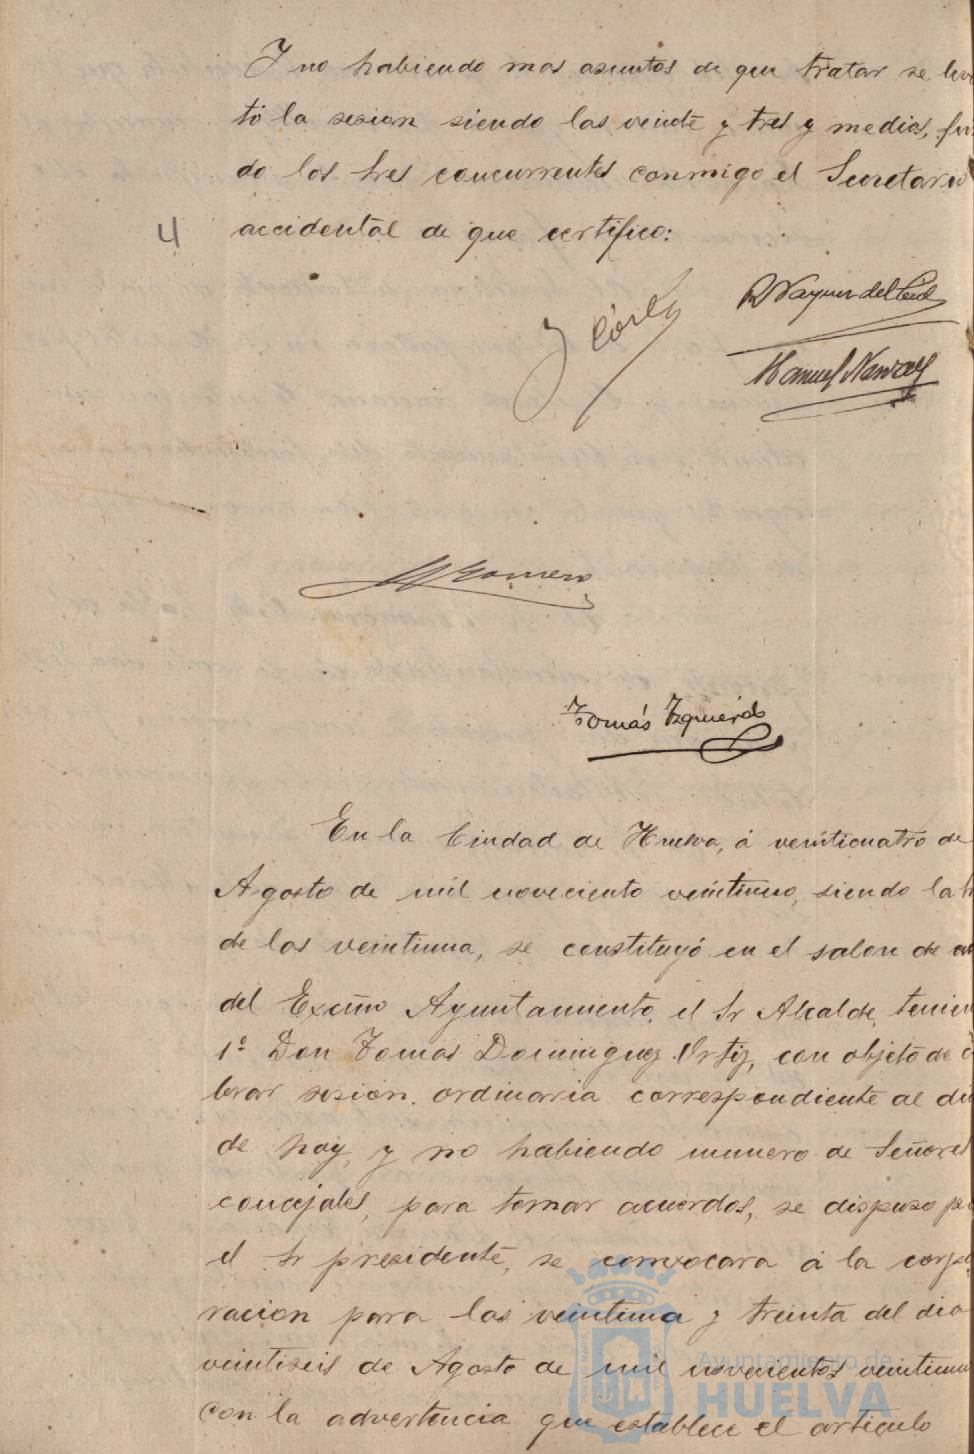 Y no habiendo mas asuntos de que tratar se leva
tó la sesion siendo las veinte y tres y media, fir
do los tres concurrentes conmigo el Secretario
4 accidental de que certifico:
Manuel Navarro
Romero
Tomás Izquierdo
En la Ciudad de Huelva, á veinticuatro de
Agosto de mil noveciento veintiuno, siendo la h
de las veintiuna, se constituyó en el salon de
del Excmo Ayuntamiento, el Sr Alcalde, tenien
1º Don Tomas Dominguez Ortiz, con objeto de
brar sesion ordinaria correspondiente al di
de hoy, y no habiendo numero de Señores
concejales, para tomar acuerdos, se dispuso p
el Sr presidente, se convocara á la corpo
racion para las veintiuna y treinta del dia
veintiseis de Agosto de mil novecientos veintiun
con la advertencia que establece el articulo
Ayuntamiento de
HUELVA